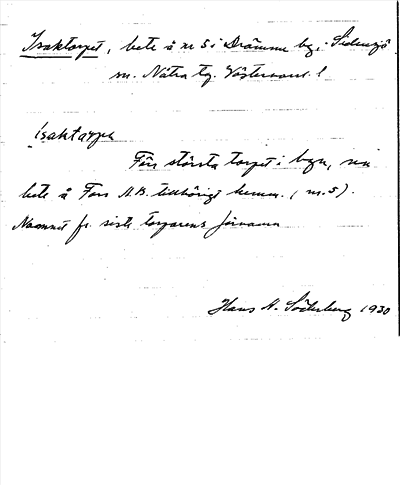 Isaktorpet, bete å nr 5 i Drömme by, Sidensjö
sn. Nätra tg. Västernorrl. l
Isaktårpe
Förr största torpet i byn, nu
bete å Fors A.B. tillhörigt hemm. (nr. 5).
Namnet fr. siste torparens förnamn
Hans A. Söderberg 1930